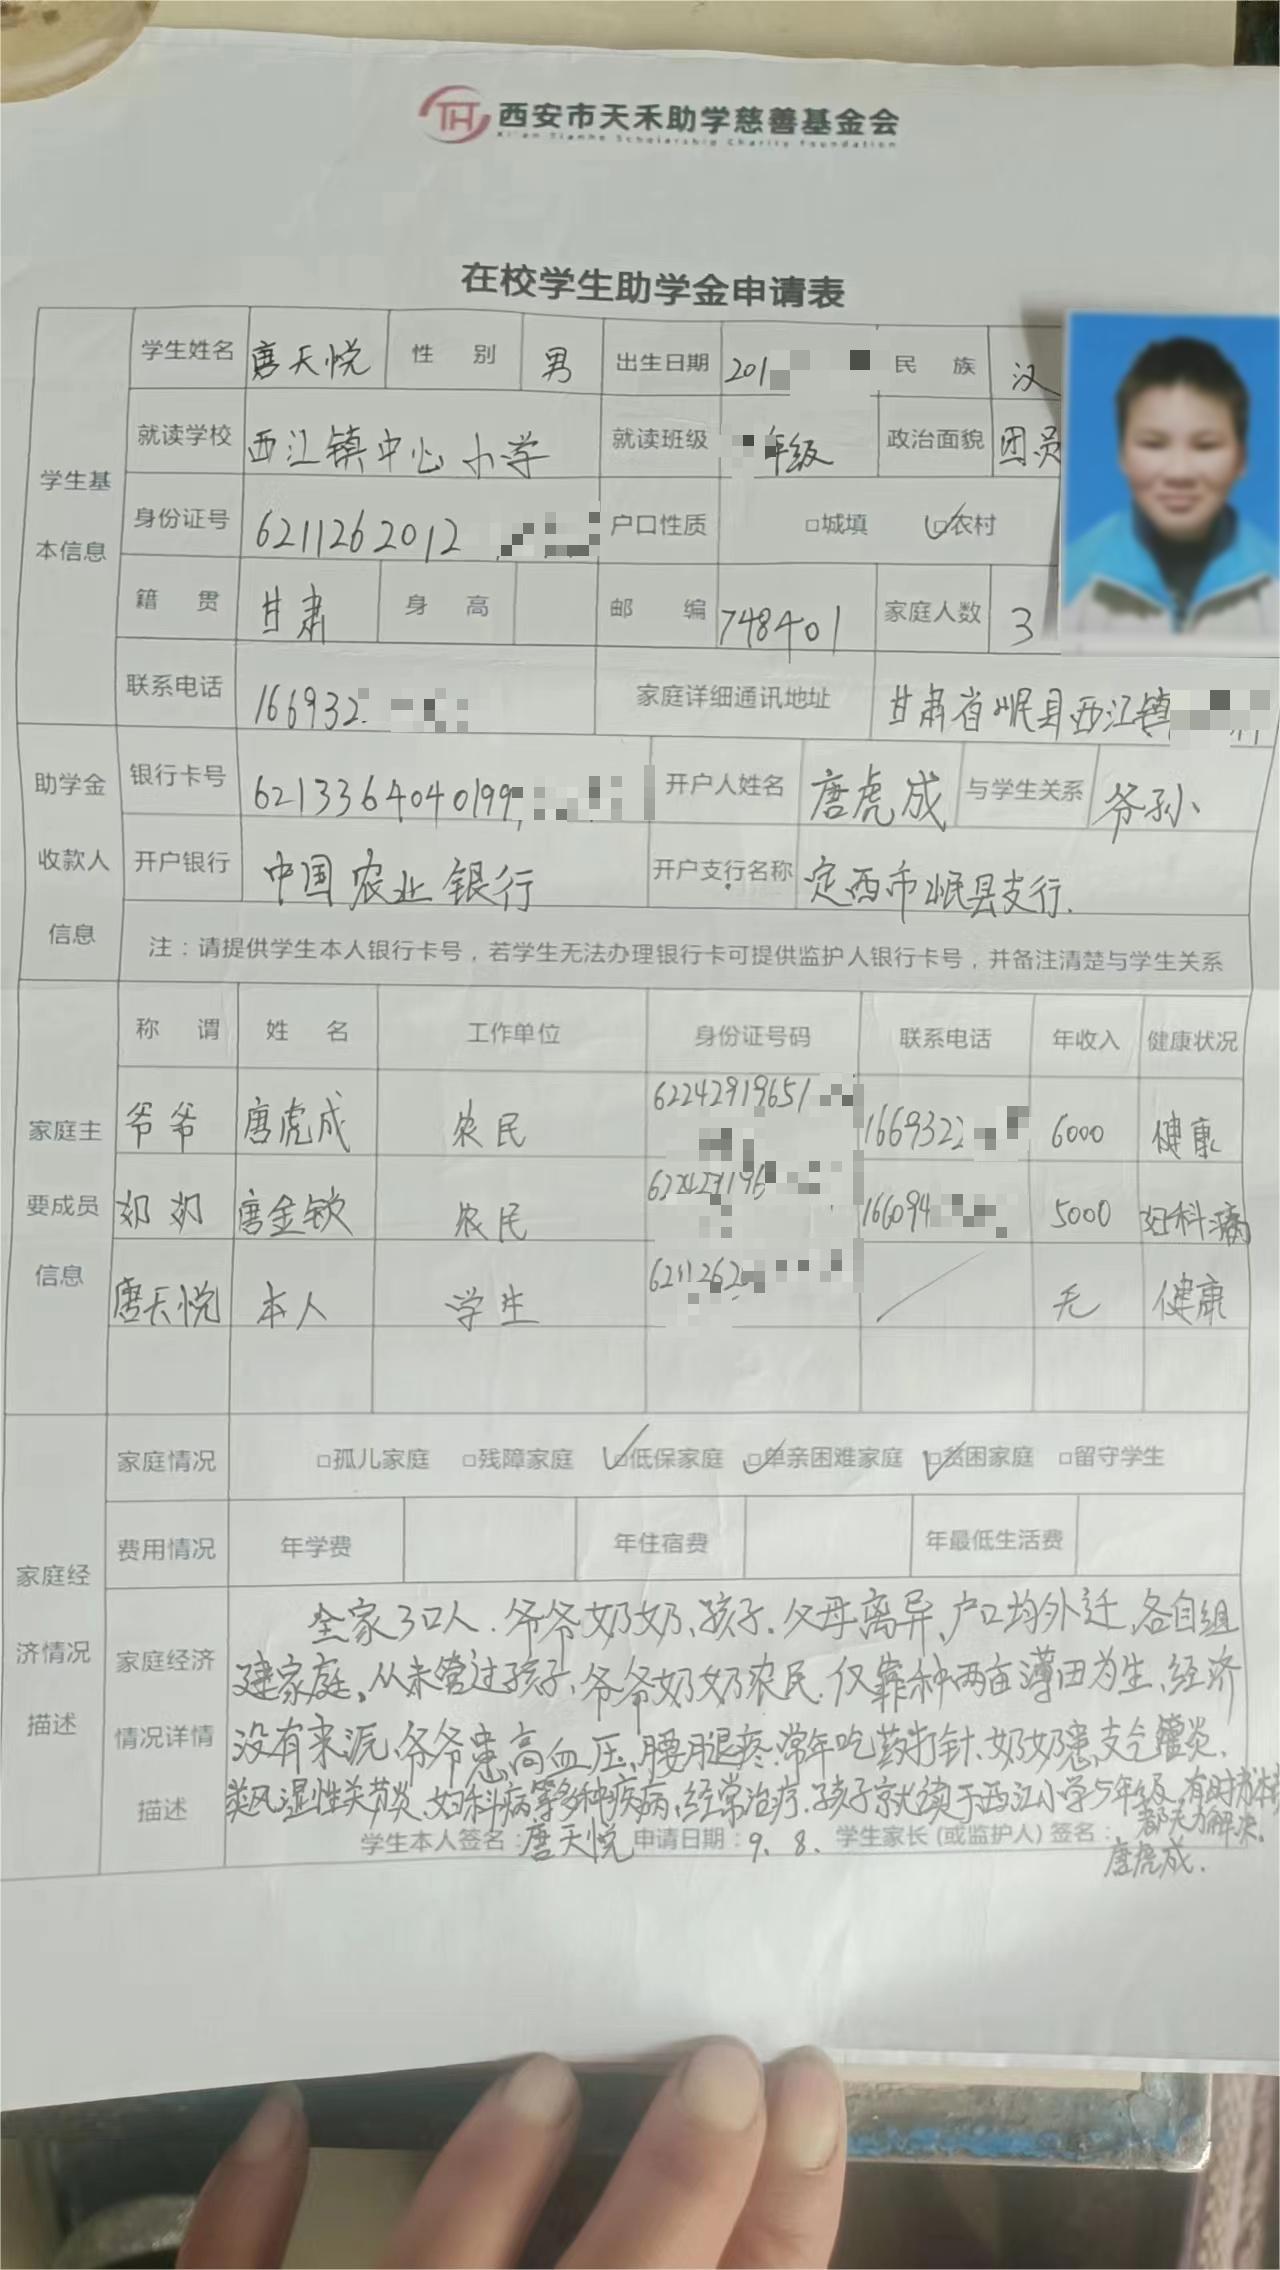 TH 西安市天禾助学慈善基金会
Xi'an Tianhe Scholarship Charity Foundation
在校学生助学金申请表
学生基本信息
学生姓名 唐天悦 性别 男 出生日期 201 民族 汉
就读学校 西江镇中心小学 就读班级 年级 政治面貌 团员
身份证号 6211262012 户口性质 □城填 □农村
籍贯 甘肃 身高 邮编 748401 家庭人数 3
联系电话 166932 家庭详细通讯地址 甘肃省岷县西江镇
助学金收款人信息
银行卡号 6213364040199 开户人姓名 唐虎成 与学生关系 爷孙
开户银行 中国农业银行 开户支行名称 定西市岷县支行.
注：请提供学生本人银行卡号，若学生无法办理银行卡可提供监护人银行卡号，并备注清楚与学生关系
家庭主要成员信息
称谓 姓名 工作单位 身份证号码 联系电话 年收入 健康状况
爷爷 唐虎成 农民 62242919651 1669322 6000 健康
奶奶 唐金钦 农民 622429196 166094 5000 妇科病
唐天悦 本人 学生 6211262 无 健康
家庭经济情况描述
家庭情况 □孤儿家庭 □残障家庭 □低保家庭 □单亲困难家庭 □贫困家庭 □留守学生
费用情况 年学费 年住宿费 年最低生活费
家庭经济情况详情描述
全家3口人.爷爷奶奶、孩子.父母离异、户口均外迁、各自组
建家庭。从未管过孩子、爷爷奶奶农民.仅靠种两亩薄田为生、经济
没有来源、爷爷患高血压、腰腿疼.常年吃药打针、奶奶患支气管炎、
类风湿性关节炎、妇科病等多种疾病、经常治疗.孩子就读于西江小学5年级、有时
都无力解决。
学生本人签名：唐天悦 申请日期：9.8. 学生家长（或监护人）签名：
唐虎成.